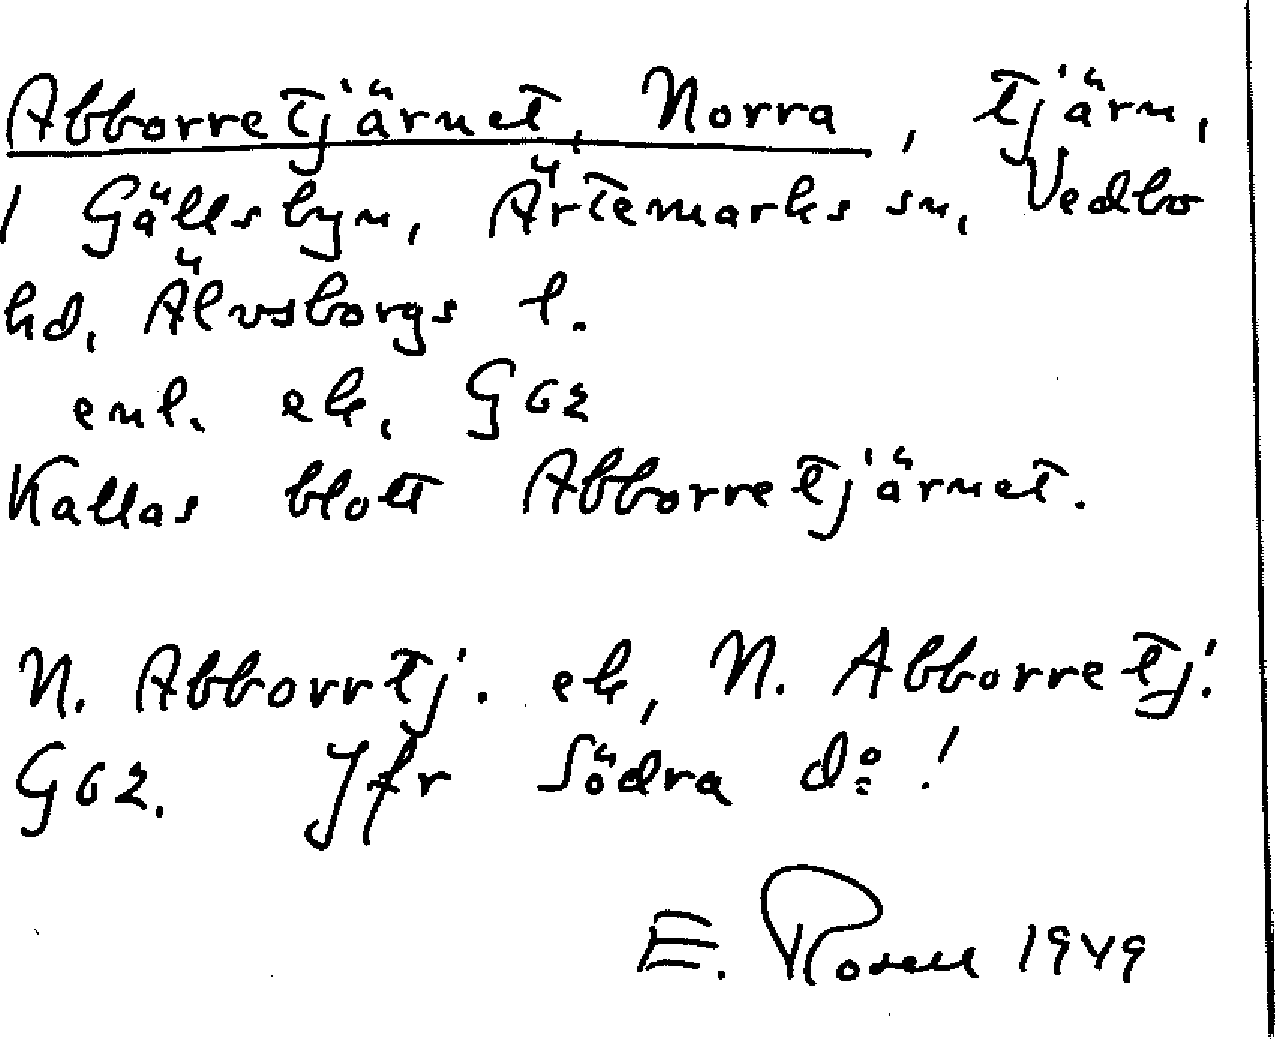 Abborretjärnet, Norra, tjärn,
i Gällsbyn, Ärtemarks sn, Vedbo
hd, Älvsborgs l.
enl. ek, G62
Kallas blott Abborretjärnet.
N. Abborrtj. ek, N. Abborretj.
G62. Jfr Södra d:o!
E. Rosell 1949